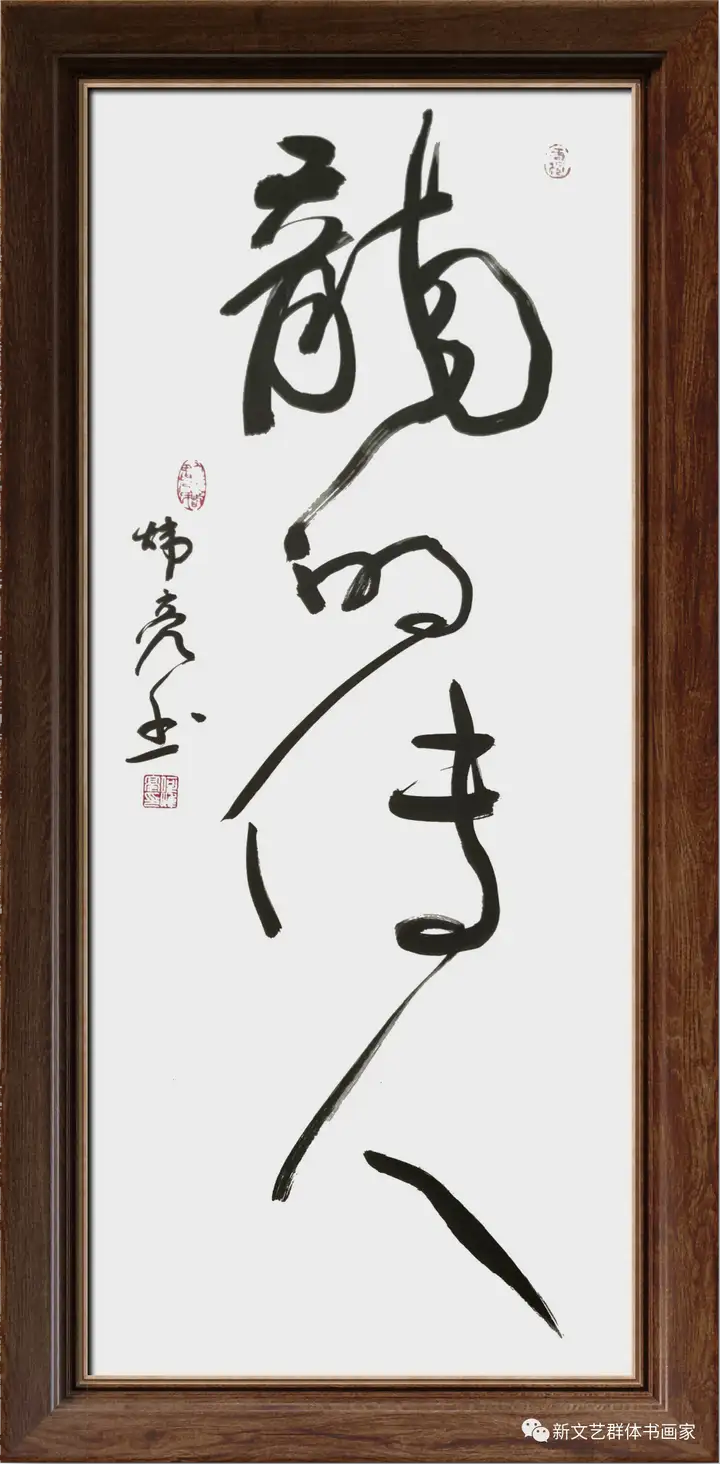 龍的传人
炜亮书
新文艺群体书画家